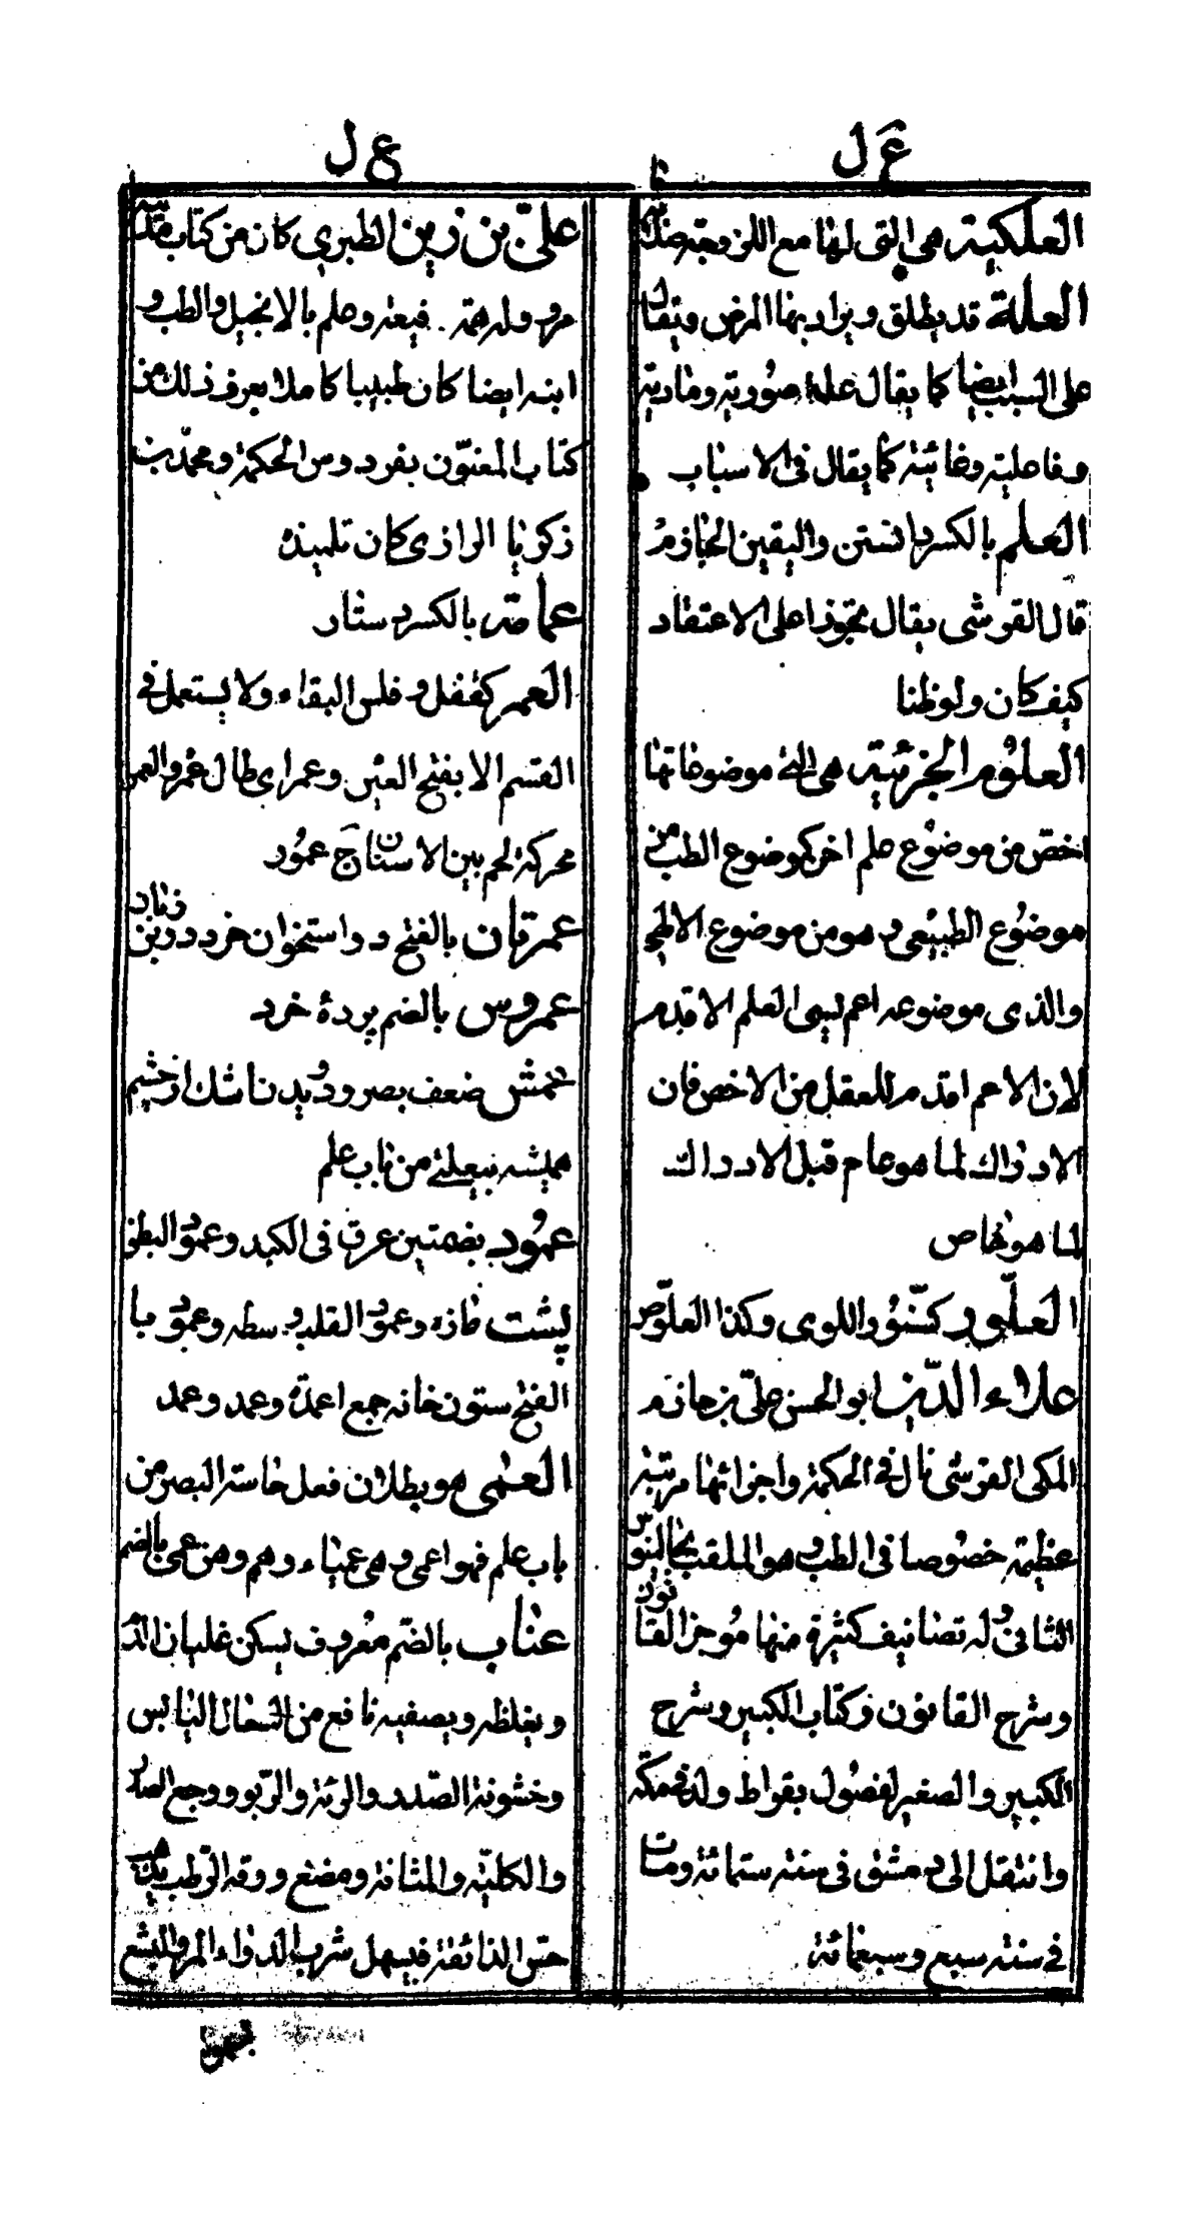 ع ل
العلكية هي التي لها مع اللزوجة صلابة
العلة قد يطلق ويراد بها المرض ويقال
على السبب ايضا كما يقال علة صورية ومادية
وفاعلية وغائية كما يقال في الاسباب
العلم بالكسر دانستن واليقين الجازم
قال القرشي يقال تجوزا على الاعتقاد
كيف كان ولو ظنا
العلوم الجزئية هي التي موضوعاتها
اخص من موضوع علم اخر كموضوع الطب من
موضوع الطبيعي وهو من موضوع الالهي
والذي موضوعه اعم ليسمى العلم الاقدم
لان الاعم اقدم للعقل من الاخص فان
الادراك لما هو عام قبل الادراك
لما هو خاص
العلّور كسنّور اللوى وكذا العلّوص
علاء الدّين ابو الحسن عليّ بن حازم
المكي القرشي نال في الحكمة واجزائها مرتبة
عظيمة خصوصا في الطب وهو الملقب بجالينوس
الثاني وله تصانيف كثيرة منها موجز القانون
وشرح القانون وكتاب الكبير وشرح
الكبير والصغير لفصول بقراط ولد في مكة
وانتقل الى دمشق في سنة ستمائة ومات
في سنة سبع وسبعمائة
ع ل
عليّ بن زين الطبري كان من كتاب
مرو وله همة وعلم بالانجيل والطب و
ابنه ايضا كان طبيبا كاملا يعرف ذلك من
كتاب المعنون بفردوس الحكمة ومحمد بن
زكريا الرازي كان تلميذه
عمامة بالكسر دستار
العمر كقفل وفلس البقاء ولا يستعمل في
القسم الا بفتح العين وعمر اي طال عمره والعمر
محركة لحم بين الاسنان ج عمور
عمرتان بالفتح دو استخوان خرد در بن زبان
عمروس بالضم بردة خرد
عمش ضعف بصر و دويدن اشك از چشم
هميشه بيعلتى من باب علم
عمود بضمتين عرق في الكبد وعمود البطن
پشت مازه وعمود القلب وسطه وعمود با
الفتح ستون خانه جمع اعمدة وعمد وعمد
العمى هو بطلان فعل حاسة البصر من
باب علم فهو اعمى وهي عمياء وهم وهن عمي بالضم
عناب بالضم معروف يسكن غليان الدم
ويغلظه ويصفيه نافع من السعال اليابس
وخشونة الصدر والرئة والربو ووجع الصدر
والكلية والمثانة ومضغ ورقه الرطب
حس الذائقة فيسهل شرب الدواء المر والبشع